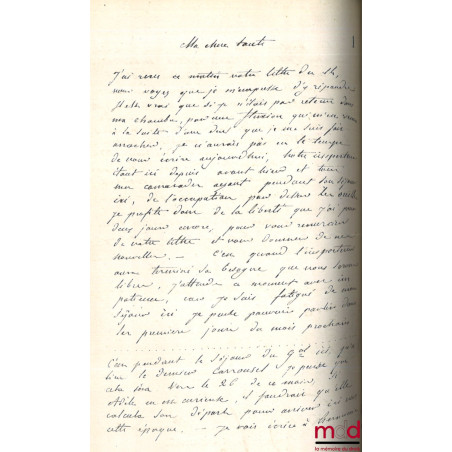 Ma chère tante
J'ai reçu ce matin votre lettre du 14,
vous voyez que je m'empresse d'y répondre
il est vrai que si je n'étais pas retenu dans
ma chambre, pour une fluxion qui m'est venue
à la suite d'une dent que je me suis fait
arracher, je n'aurais pas eu le temps
de vous écrire aujourd'hui, notre inspecteur
étant ici depuis avant hier et tous
mes camarades ayant pendant son séjour
ici, de l'occupation pour
je profite donc de la liberté que j'ai pour
deux jours encore, pour vous remercier
de votre lettre et vous donner de mes
nouvelles. — C'est quand l'inspecteur
aura terminé sa besogne que nous serons
libres, j'attends ce moment avec im
patience, car je suis fatigué de mon
séjour ici je pense pouvoir partir dans
les premiers jours du mois prochain
C'est pendant le séjour du Gal ici, qu'a
lieu le dernier Carrousel je pense que
cela sera vers le 26 de ce mois, si
est curieuse, il faudrait qu'elle
calcula son départ pour arriver ici à
cette époque. — je vais écrire à
mdd
la mémoire du droit